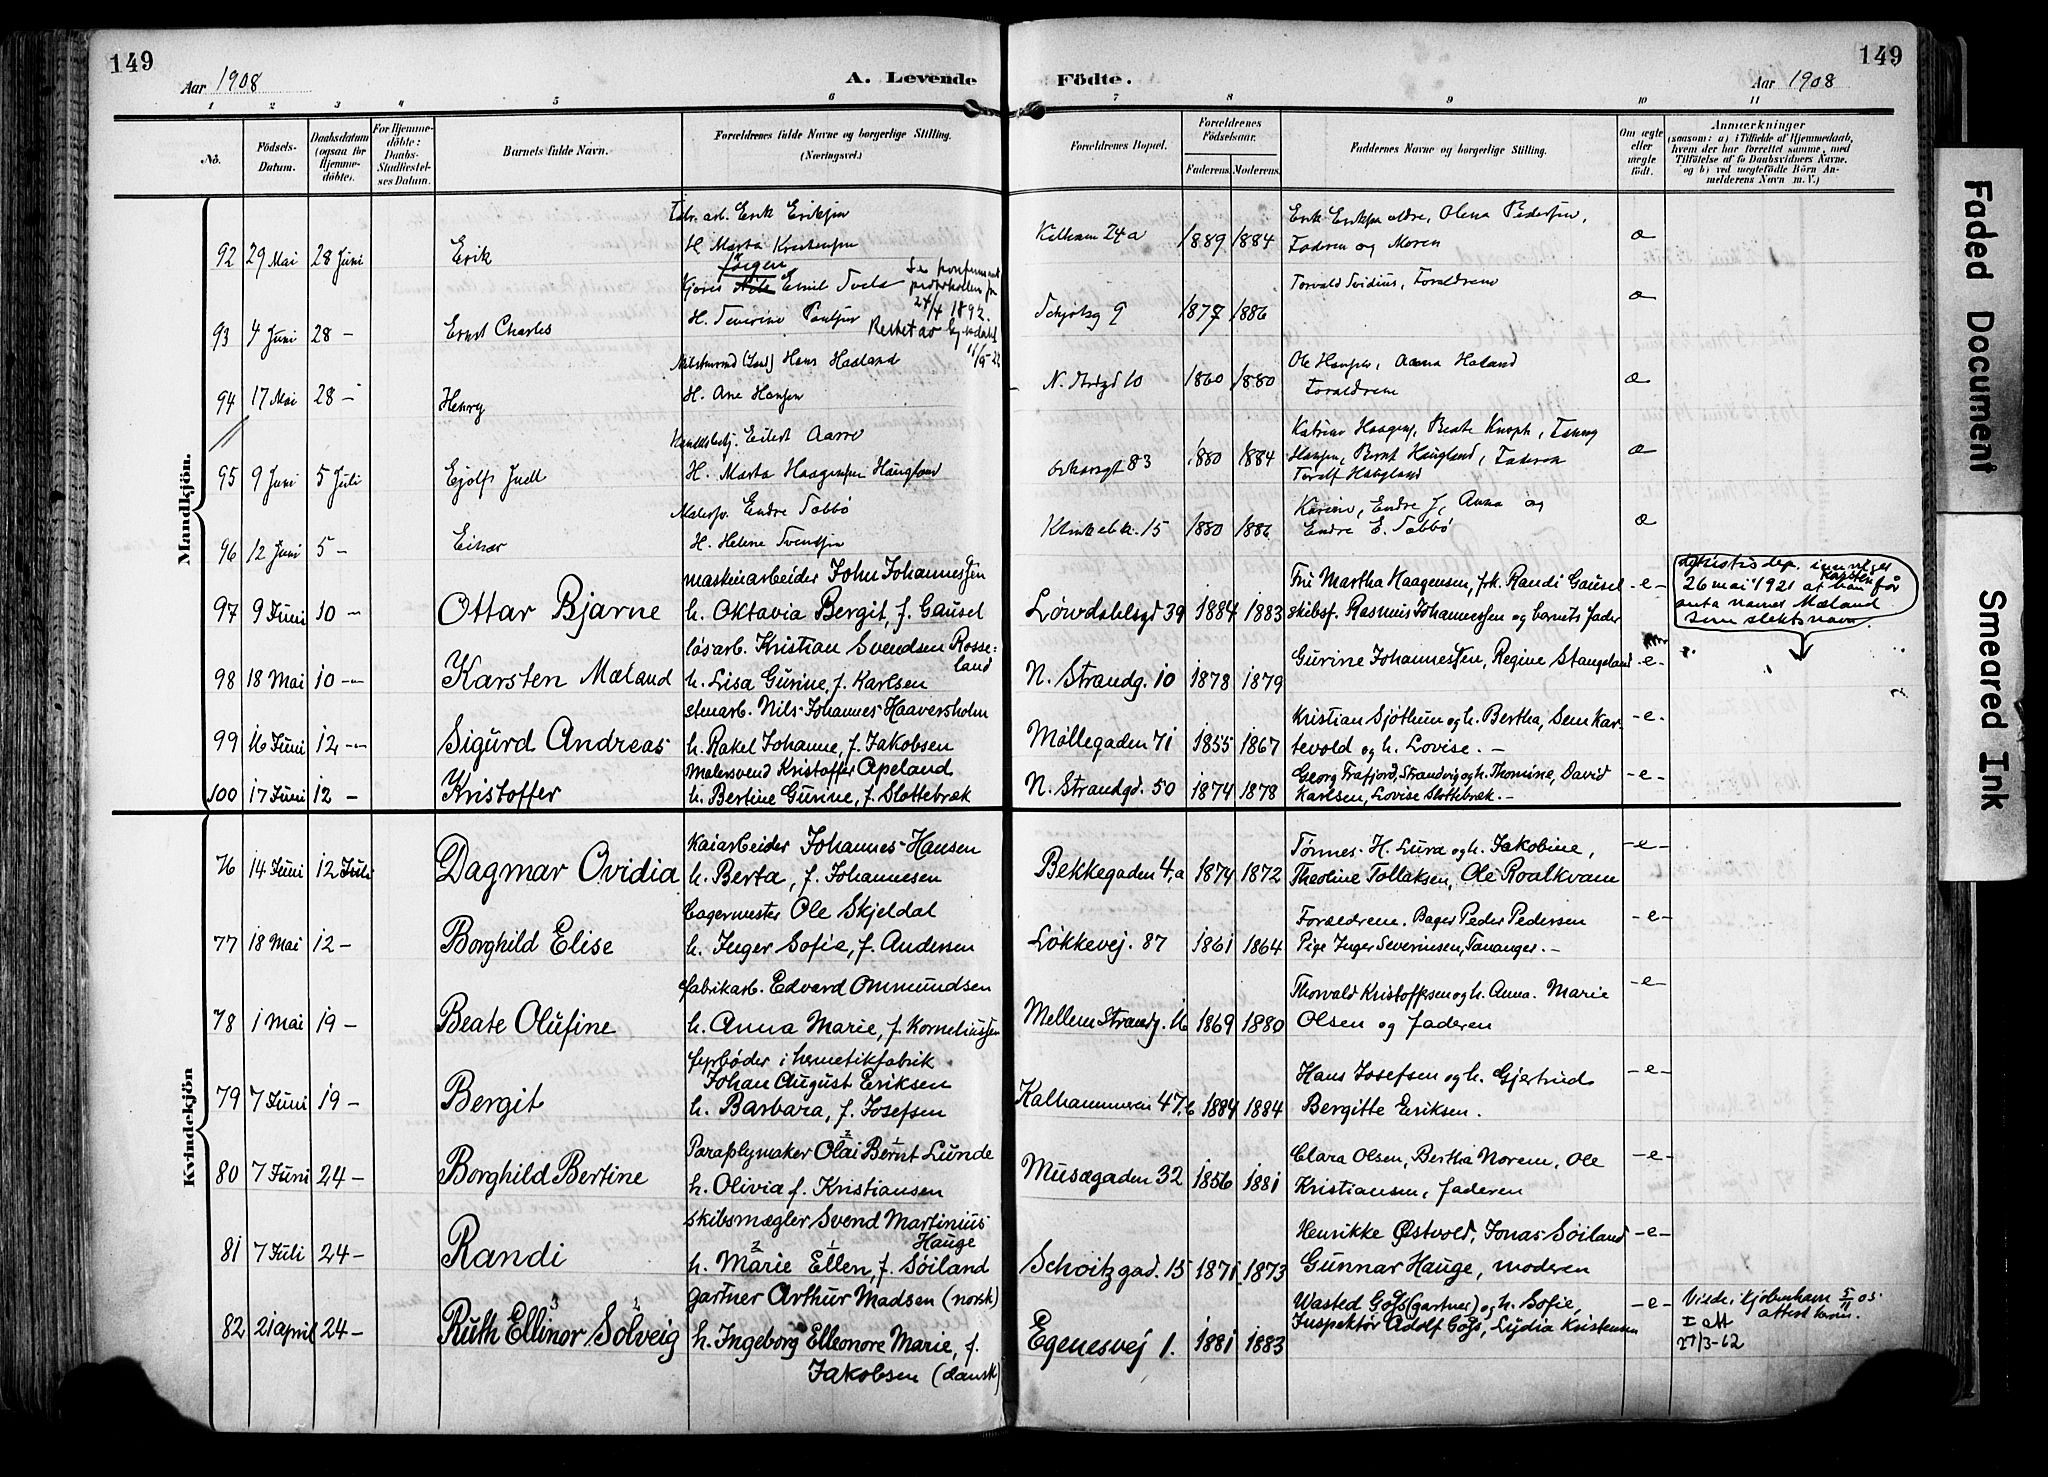 149
149
Aar 1908
A. Levende Födte.
Aar 1908
1 2 3 4 5 6 7 8 9 10 11
No.
Födsels-Datum.
Daabsdatum (ogsaa for Hjemme-döbte).
For Hjemme-döbte: Daabs-Stadfæstel-ses Datum.
Barnets fulde Navn.
Forældrenes fulde Navne og borgerlige Stilling. (Næringsvei.)
Forældrenes Bopæl.
Forældrenes Födselsaar.
Faderens. Moderens.
Faddernes Navne og borgerlige Stilling.
Om ægte eller uægte födt.
Anmærkninger
(saasom: a) i Tilfælde af Hjemmedaab, hvem der har forrettet samme, med Tilföielse af to Daabsvidners Navne, og b) ved uegtefödte Börn Anmelderens Navn m. V.)
Mandkjön.
Erik Eriksen
Erik Eriksen eldre, Olena Pedersen,
92 29 Mai 28 Juni Erik H. Marta Kristensen 24a 1889 1884 Faderen og Moren æ
Jörgen
Emil
24/4 1892.
Forældrene
93 4 Juni 28 - Ernst Charles H. Severine Paulsen 9 1877 1886 æ
Hans Haaland
Ole Hansen, Anna Haland
94 17 Mai 28 - Henry H. Ane Hansen 10 1860 1880 Forældrene æ
Eilert Aarre
95 9 Juni 5 Juli Ejolf Juell H. Marta Haagensen Haugland 83 1880 1884 Hansen, Bernt Haugland, Faderen æ
Toralf Haugland
Endre Tobbö
Endre J, Anna og
96 12 Juni 5 - Einar H. Helene Svendsen 15 1880 1886 Endre E. Tobbö æ
maskinarbeider John Johannessen
Fru Martha Haagensen, frk. Randi Gausel
97 9 Juni 10 - Ottar Bjarne h. Oktavia Bergit, f. Gausel Løwdahlsgd 39 1884 1883 skibsf. Rasmus Johannessen og barnets fader -e-
26 mai 1921 at Karsten får
anta navnet Mæland
som slektsnavn.
løsarb. Kristian Svendsen Rosse-
land
Gurine Johannessen, Regine Stangeland
98 18 Mai 10 - Karsten Mæland h. Lisa Gurine, f. Karlsen N. Strandg. 10 1878 1879 -e-
stenarb. Nils Johannes Haaversholm
Kristian Sjöthun og h. Bertha, Sem Kar-
99 16 Juni 12 - Sigurd Andreas h. Rakel Johanne, f. Jakobsen Møllegaden 71 1855 1867 tevold og h. Lovise. - -e-
Malersvend Kristoffer Apeland
Georg Frafjord, Strandvig og h. Thomine, David
100 17 Juni 12 - Kristoffer h. Bertine Gurine, f. Slottebræk N. Strandgd. 50 1874 1878 Karlsen, Lovise Slottebræk. - -e-
Kvindekjön
Kaiarbeider Johannes Hansen
Tønnes H. Lura og h. Jakobine,
76 14 Juni 12 Juli Dagmar Ovidia h. Berta, f. Johannesen Bekkegaden 4,a 1874 1872 Theoline Tollaksen, Ole Roalkvam -e-
bagermester Ole Skjeldal
Forældrene. Bager Peder Pedersen
77 18 Mai 12 - Borghild Elise h. Inger Sofie, f. Andersen Løkkevej. 87 1861 1864 Pige Inger Severinsen, Tananger. - -e-
fabrikarb. Edvard Ommundsen
Thorvald Kristoffersen og h. Anna. Marie
78 1 Mai 19 - Beate Olufine h. Anna Marie, f. Korneliussen Mellem Strandg. 16 1869 1880 Olsen og faderen -e-
fyrbøder i hermetikfabrik
Johan August Eriksen
Hans Josefsen og h. Gjertrud
79 7 Juni 19 - Bergit h. Barbara, f. Josefsen Kalhammeren 47,b 1884 1884 Bergitte Eriksen. -e-
Paraplymaker Olai Bernt Lunde
Clara Olsen, Bertha Norem, Ole
80 7 Juni 24 - Borghild Bertine h. Olivia f. Kristiansen Musægaden 32 1856 1881 Kristiansen, faderen -e-
skibsmægler Svend Martinius
Hauge
Henrikke Østvold, Jonas Søiland
81 7 Juli 24 - Randi h. Marie Ellen, f. Søiland Schøitzgad. 15 1871 1873 Gunnar Hauge, moderen -e-
gartner Arthur Madsen (norsk)
Wasted Goss (gartner) og h. Sofie,
82 21 april 24 - Ruth Ellinor Solveig h. Ingeborg Elleonore Marie, f. Egenesvej 1. 1881 1883 Inspektør Adolf Goss, Lydia Kristensen -e-
Jakobsen (dansk)
Viede i Kjøbenhavn 5/11 05
I att
27/3-62
Faded Document
Smeared Ink